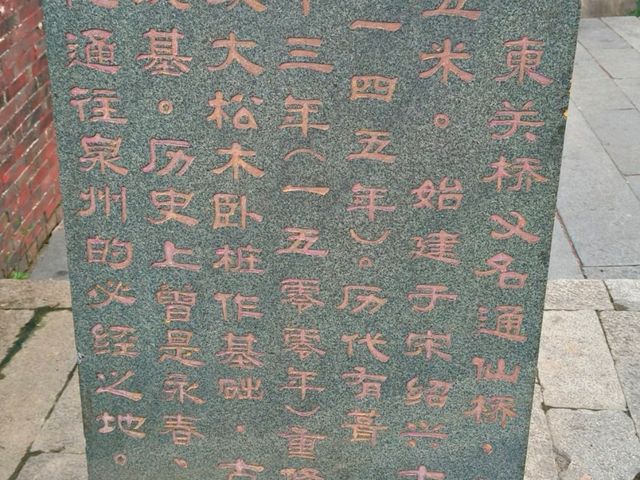 東关桥又名通仙桥.
五米。始建于宋绍兴十
一四五年)。历代有葺
十三年(一五零零年)重修
大松木卧桩作基础.古
基。历史上曾是永春、
通往泉州的必经之地。